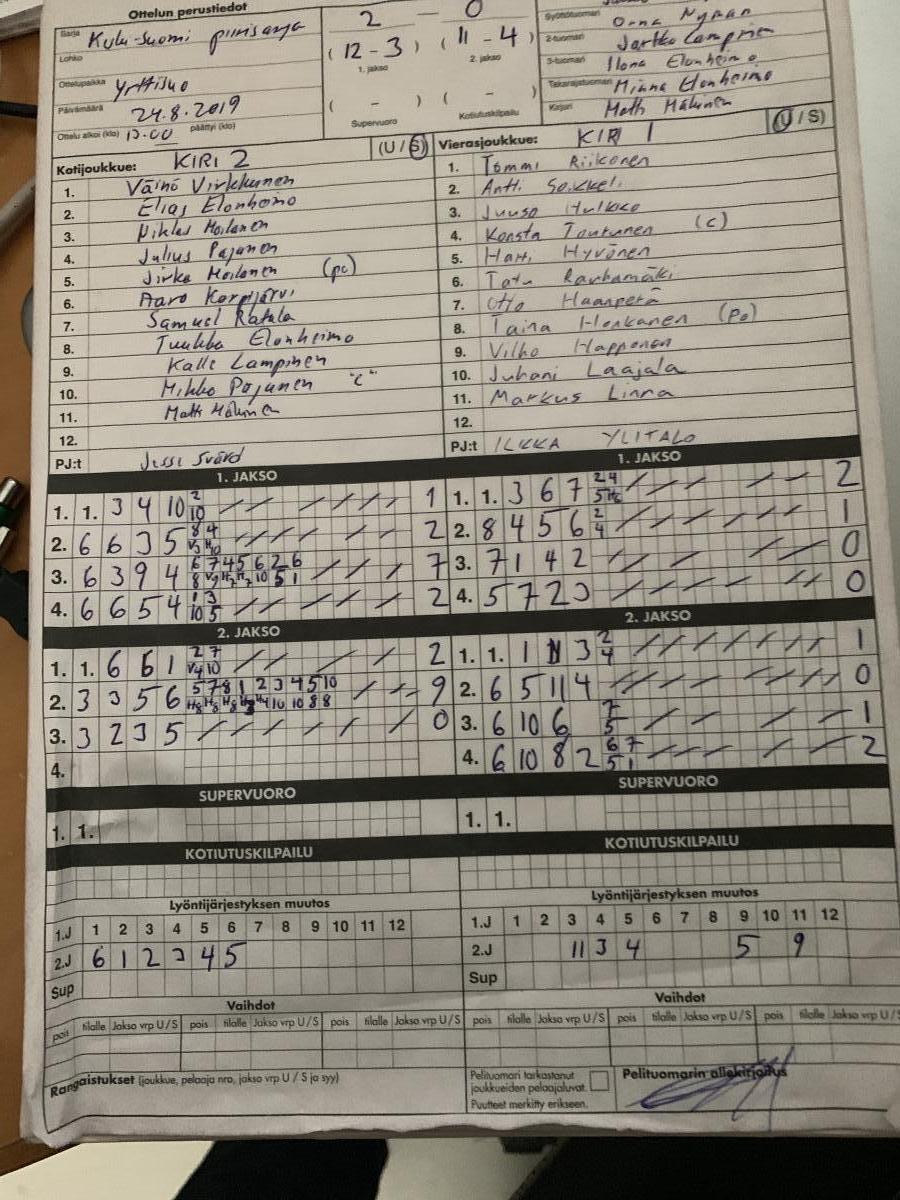 Ottelun perustiedot
Sarja
Lohko
Ottelupaikka
Päivämäärä 24.8.2019
Ottelu alkoi (klo) 13.00 päättyi (klo)
2 — 0
( 12 - 3 ) ( 11 - 4 )
1. jakso 2. jakso
( - ) ( - )
Supervuoro Kotiutuskilpailu
Syöttötuomari Orna Nyman
2-tuomari Jarkko Lampinen
3-tuomari Ilona Elonheimo
Takarajatuomari Minna Elonheimo
Kirjuri Matti Mäkinen
Kotijoukkue: KIRI 2 (U / S)
1. Väinö Virkkunen
2. Elias Elonheimo
3. Niklas Moilanen
4. Julius Pajanen
5. Jirka Moilanen (pc)
6. Aaro Karpijärvi
7. Samuel Ratala
8. Tuukka Elonheimo
9. Kalle Lampinen
10. Mikko Pajunen "C"
11. Matti Mäkinen
12.
PJ:t Jessi Svärd
Vierasjoukkue: KIRI 1 (U / S)
1. Tommi Riikonen
2. Antti
3. Juuso Hulkko
4. Konsta Tautunen (C)
5. Harri Hyvönen
6. Tatu Rauhamäki
7. Otto Haanperä
8. Taina Honkanen (Po)
9. Vilho Happonen
10. Juhani Laajala
11. Markus Linna
12.
PJ:t ILKKA YLITALO
1. JAKSO
1. 1. 3 4 10 2 10 1
2. 6 6 3 5 2
3. 6 3 9 4 7
4. 6 6 5 4 2
1. JAKSO
1. 1. 3 6 7 2
2. 8 4 5 6 2 4 1
3. 7 1 4 2 0
4. 5 7 2 3 0
2. JAKSO
1. 1. 6 6 1 2
2. 3 3 5 6 9
3. 3 2 3 5 0
4.
2. JAKSO
1. 1. 1 3 2 4 1
2. 6 5 11 4 0
3. 6 10 6 7 5 1
4. 6 10 8 2 6 7 5 1 2
SUPERVUORO
1. 1.
SUPERVUORO
1. 1.
KOTIUTUSKILPAILU
KOTIUTUSKILPAILU
Lyöntijärjestyksen muutos
1.J 1 2 3 4 5 6 7 8 9 10 11 12
2.J 6 1 2 3 4 5
Sup
Lyöntijärjestyksen muutos
1.J 1 2 3 4 5 6 7 8 9 10 11 12
2.J 11 3 4 5 9
Sup
Vaihdot
pois tilalle Jakso vrp U / S pois tilalle Jakso vrp U / S pois tilalle Jakso vrp U / S
Vaihdot
pois tilalle Jakso vrp U / S pois tilalle Jakso vrp U / S pois tilalle Jakso vrp U / S
Rangaistukset (joukkue, pelaaja nro, jakso vrp U / S ja syy)
Pelituomari tarkastanut
joukkueiden pelaajaluvat.
Puutteet merkitty erikseen.
Pelituomarin allekirjoitus